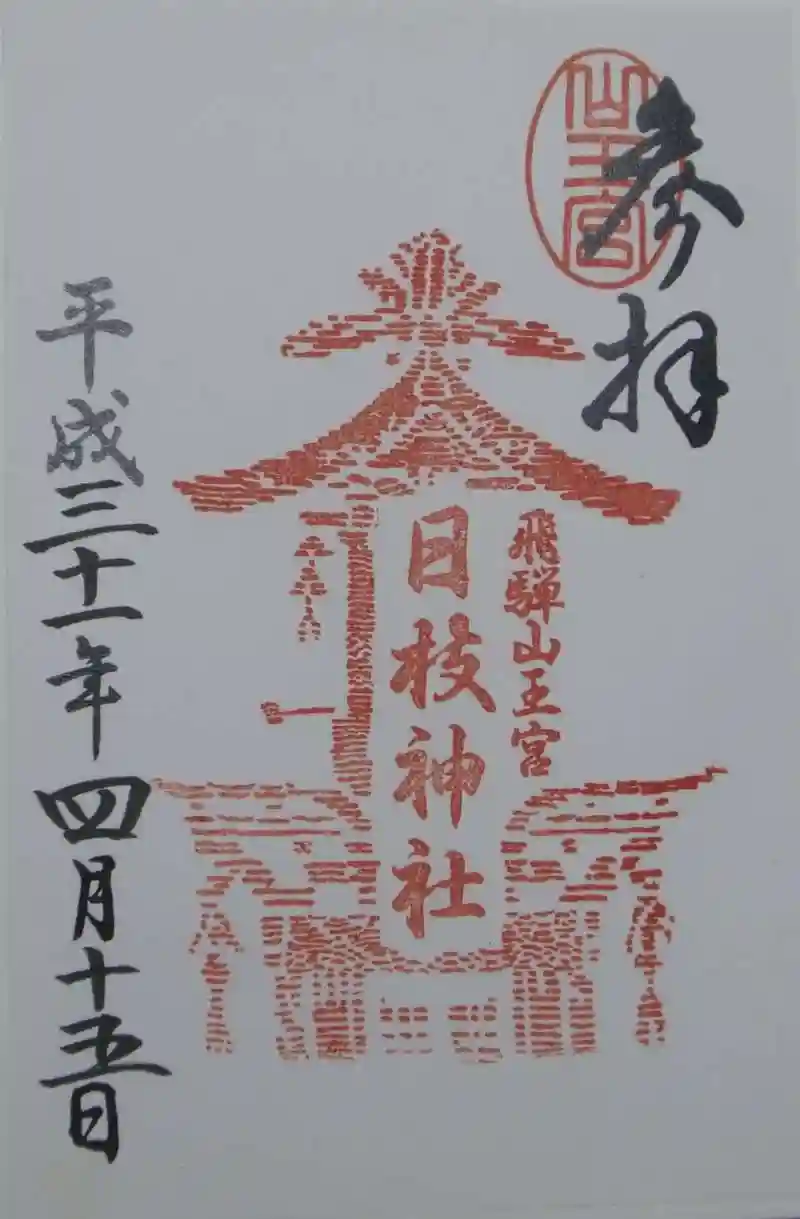 参拝
仙王宮
飛騨山王宮
日枝神社
平成三十一年四月十五日